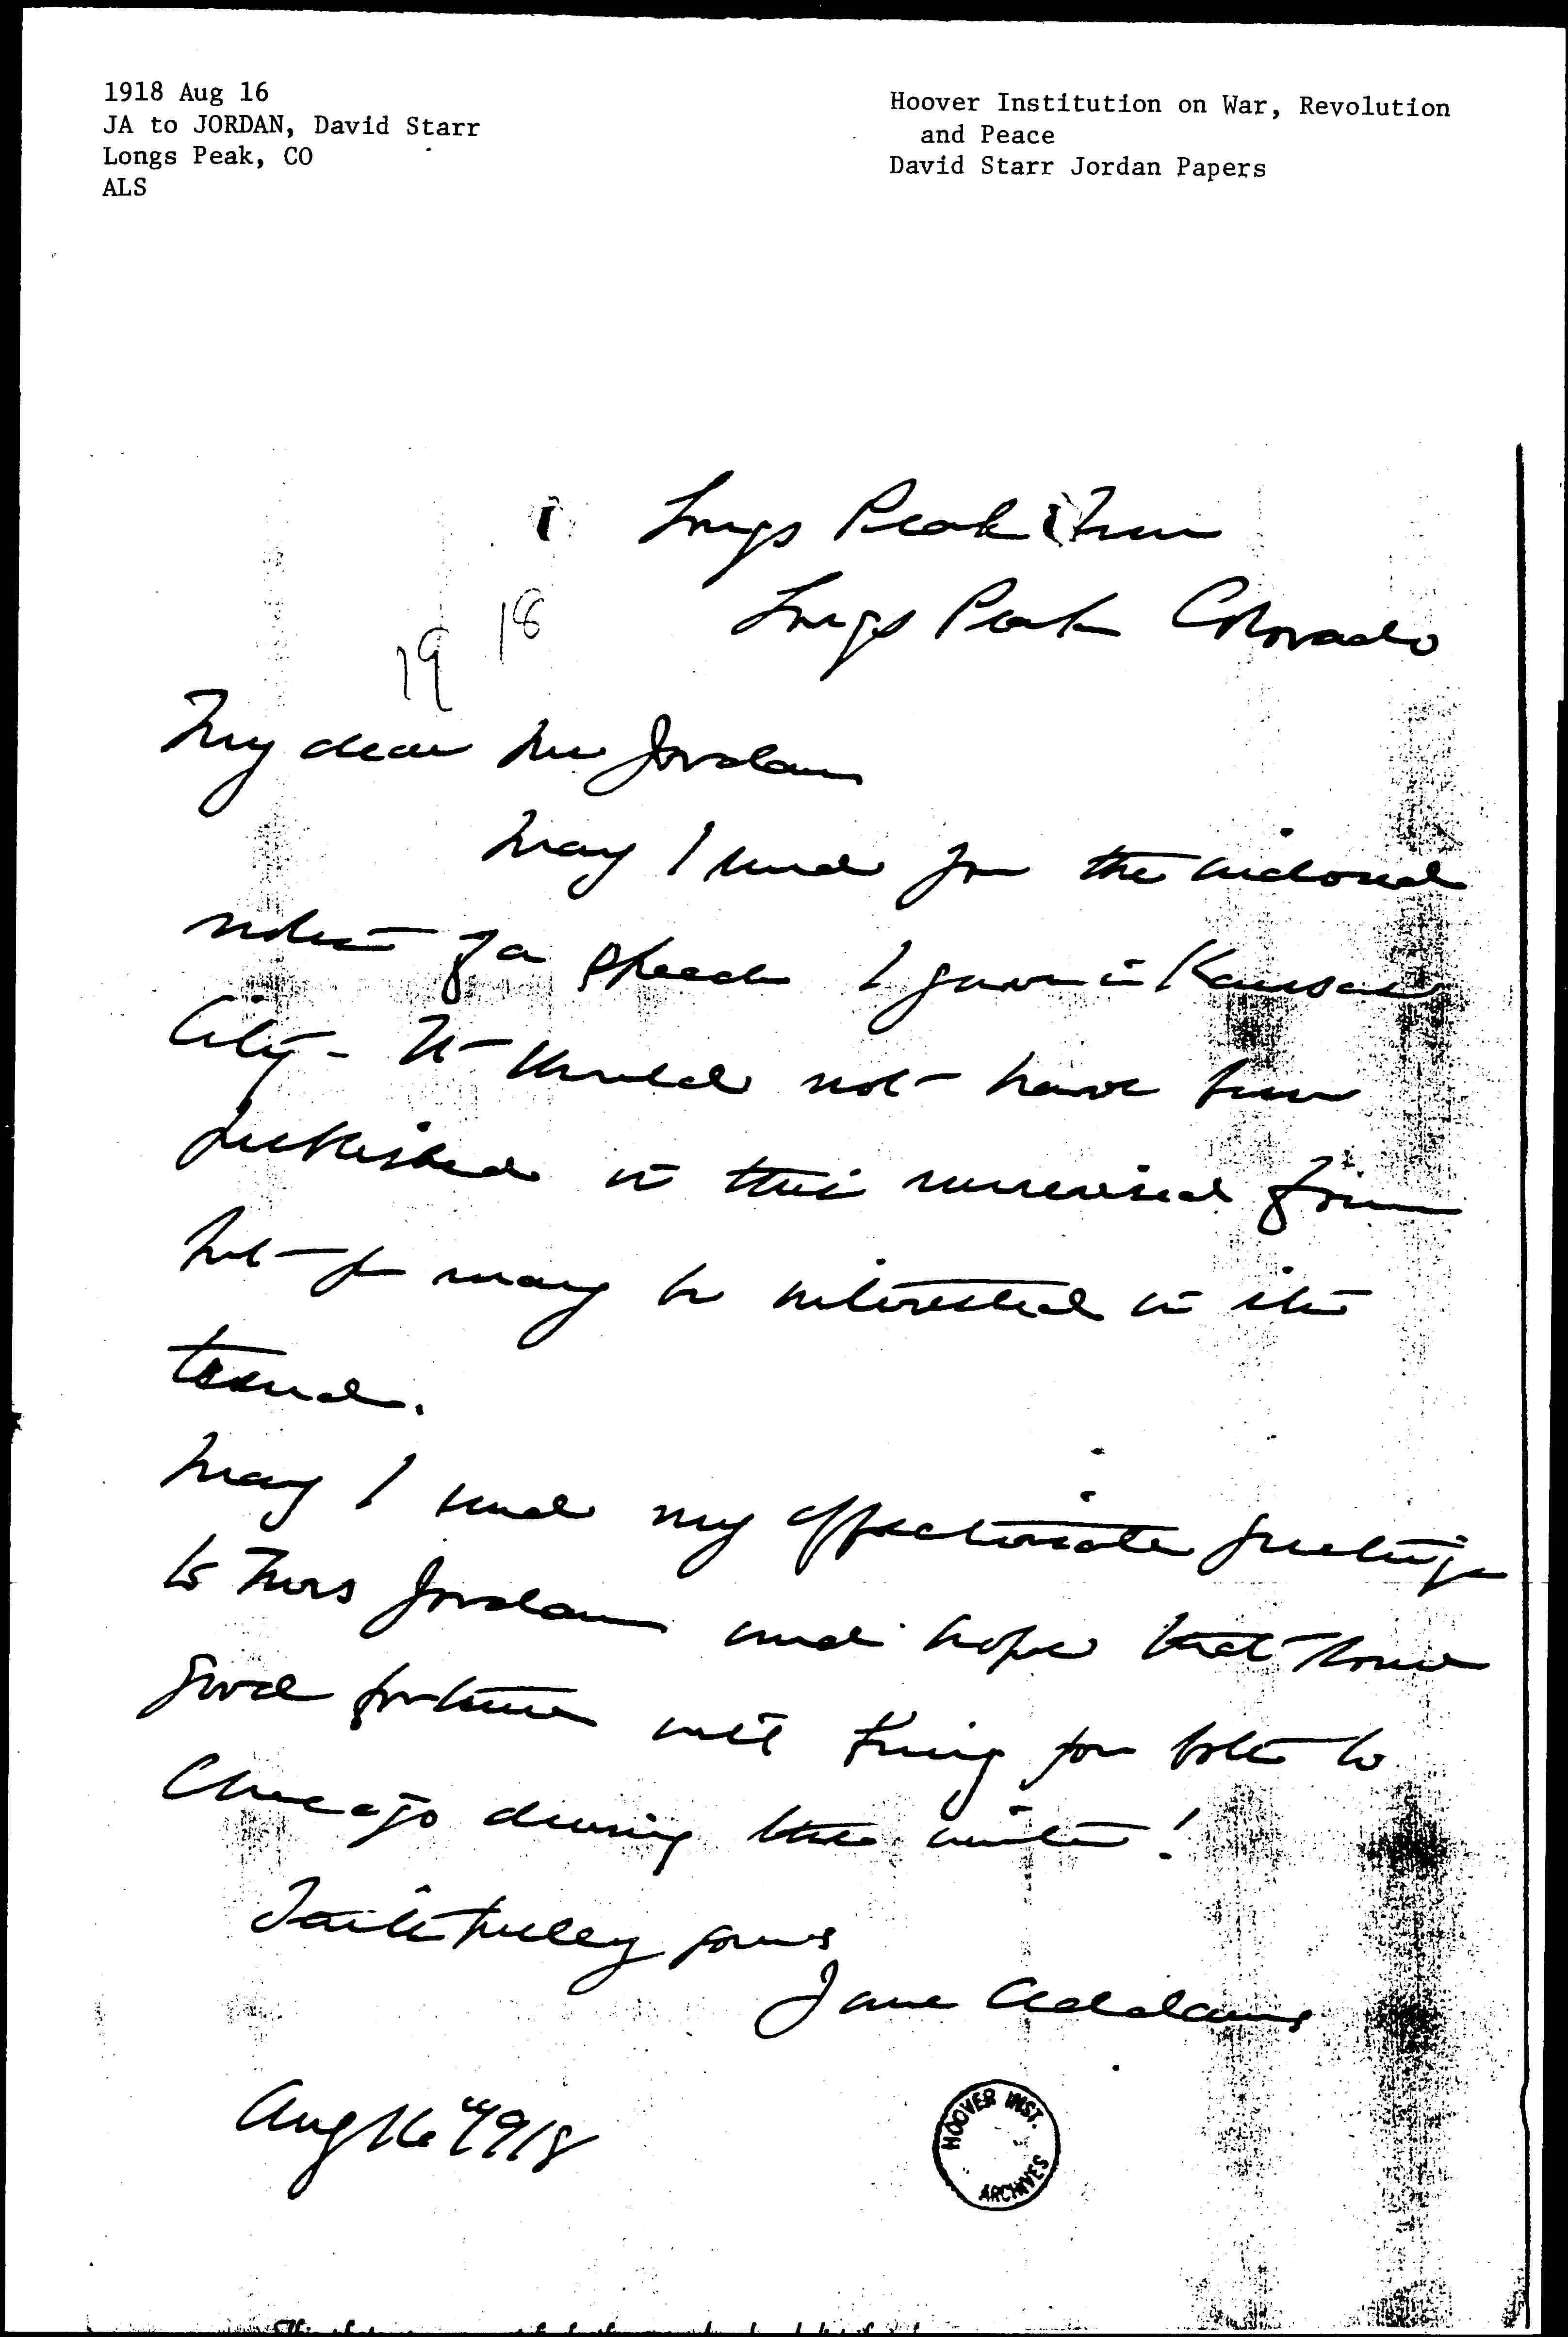 1918 Aug 16
JA to JORDAN, David Starr
Longs Peak, CO
ALS
Hoover Institution on War, Revolution
and Peace
David Starr Jordan Papers
Longs Peak Inn
Longs Peak Colorado
19 18
My dear Mr Jordan
May I send you the inclosed
of a speech I gave in Kansas
City - It should not have been
published in this unrevised form
but you may be interested in its
trend.
May I send my affectionate greetings
to Mrs Jordan and hope that some
good fortune will bring you both to
Chicago during the winter!
Faithfully yours
Jane Addams
Aug 16" 1918
HOOVER INST.
ARCHIVES